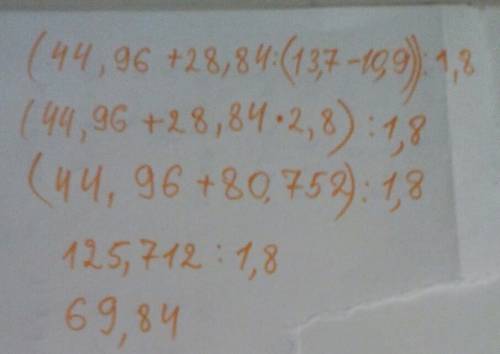 (44,96+28,84:(13,7-10,9)):1,8
(44,96+28,84·2,8):1,8
(44,96+80,752):1,8
125,712:1,8
69,84